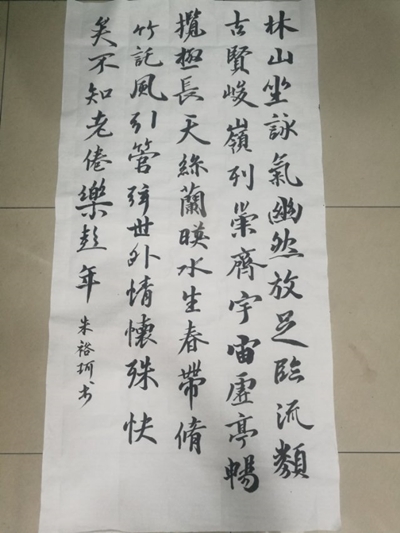 林山坐詠氣幽然放足臨流類
古賢峻嶺列崇齊宇宙虛亭暢
攬極長天絲蘭暎水生春帶脩
竹託風引管弦世外情懷殊快
矣不知老倦樂彭年
朱裕柯书